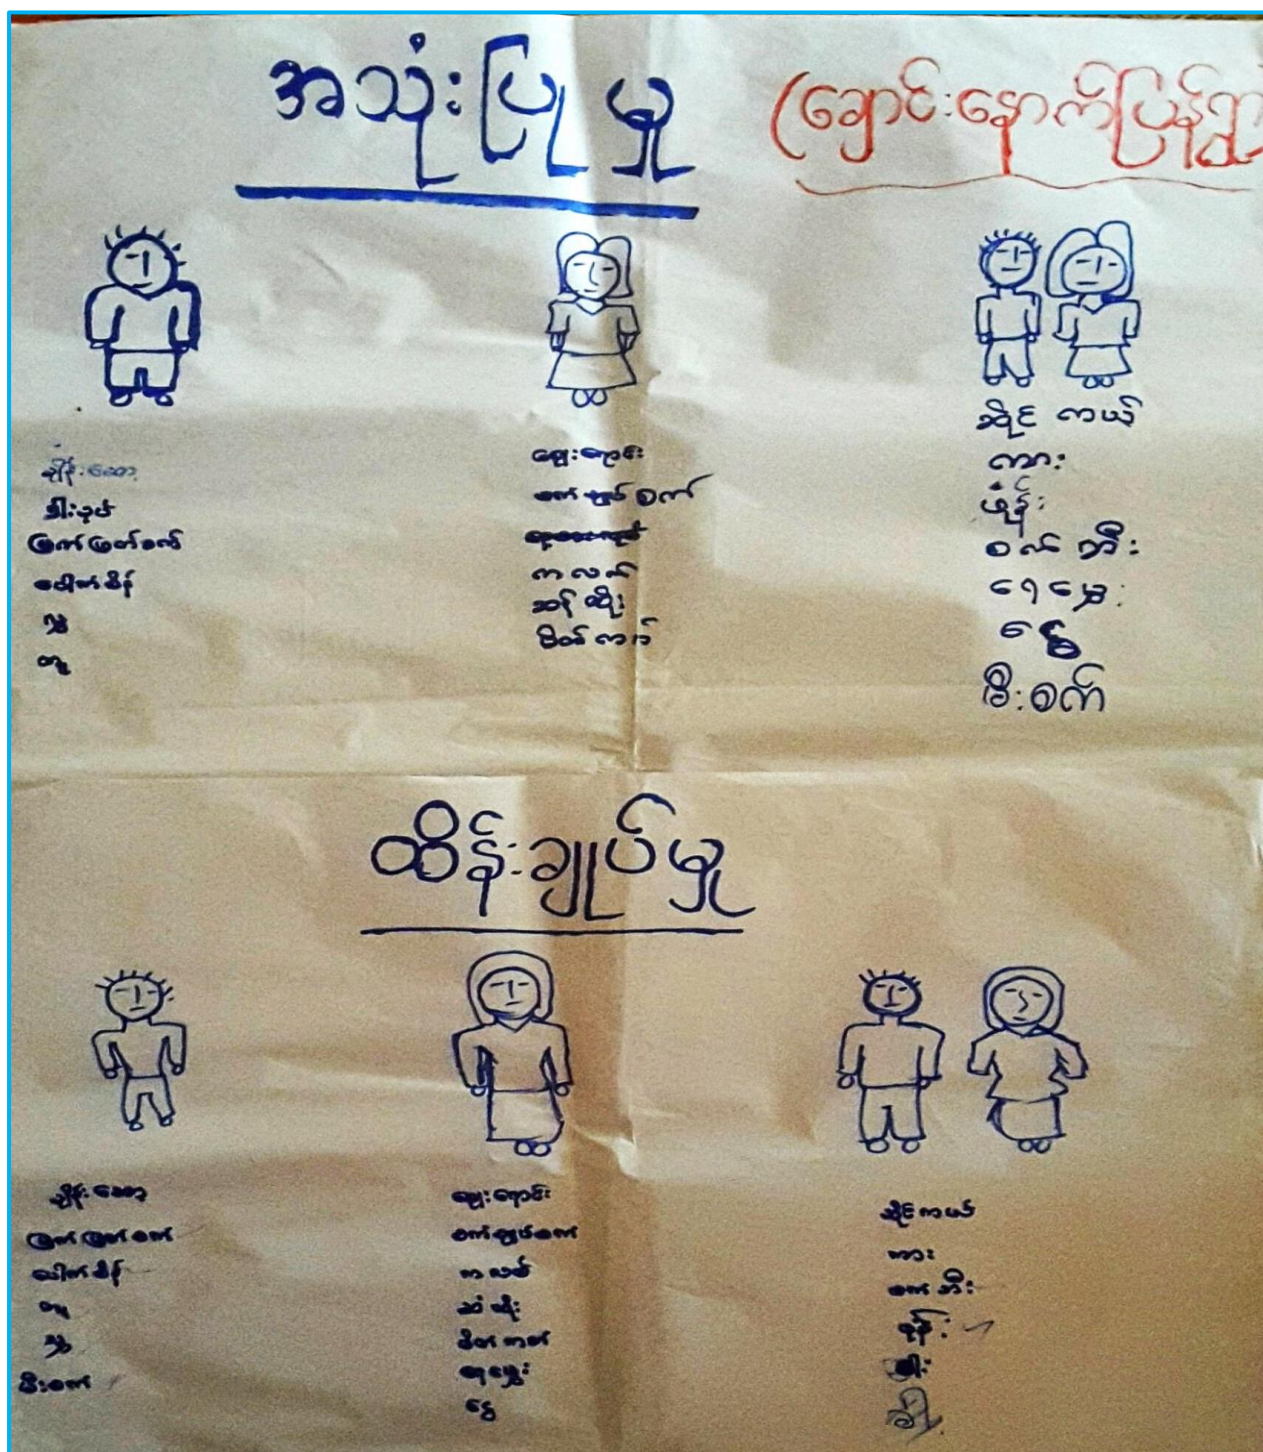 အသုံးပြုမှု (ချောင်းနောက်ပြန်ရွာ
ချိန်းဆော
ဓါးခုပ်
မြက်ဖြတ်စက်
ပေါက်စိန်
လွှ
တူ
ဈေးရောင်း
စက်ချုပ်စက်
ကလစ်
ဆန်ထိုး
မိတ်ကပ်
ဆိုင်ကယ်
ကား
ဖုန်း
စက်ဘီး
ရေမွှေး
ငွေ
မီးစက်
ထိန်းချုပ်မှု
ချိန်းဆော
မြက်ဖြတ်စက်
ပေါက်စိန်
တူ
လွှ
မီးစက်
ဈေးရောင်း
စက်ချုပ်စက်
ကလစ်
ဆံထိုး
မိတ်ကပ်
ရေမွှေး
ငွေ
ဆိုင်ကယ်
ကား
စက်ဘီး
ဖုန်း
ဓါး